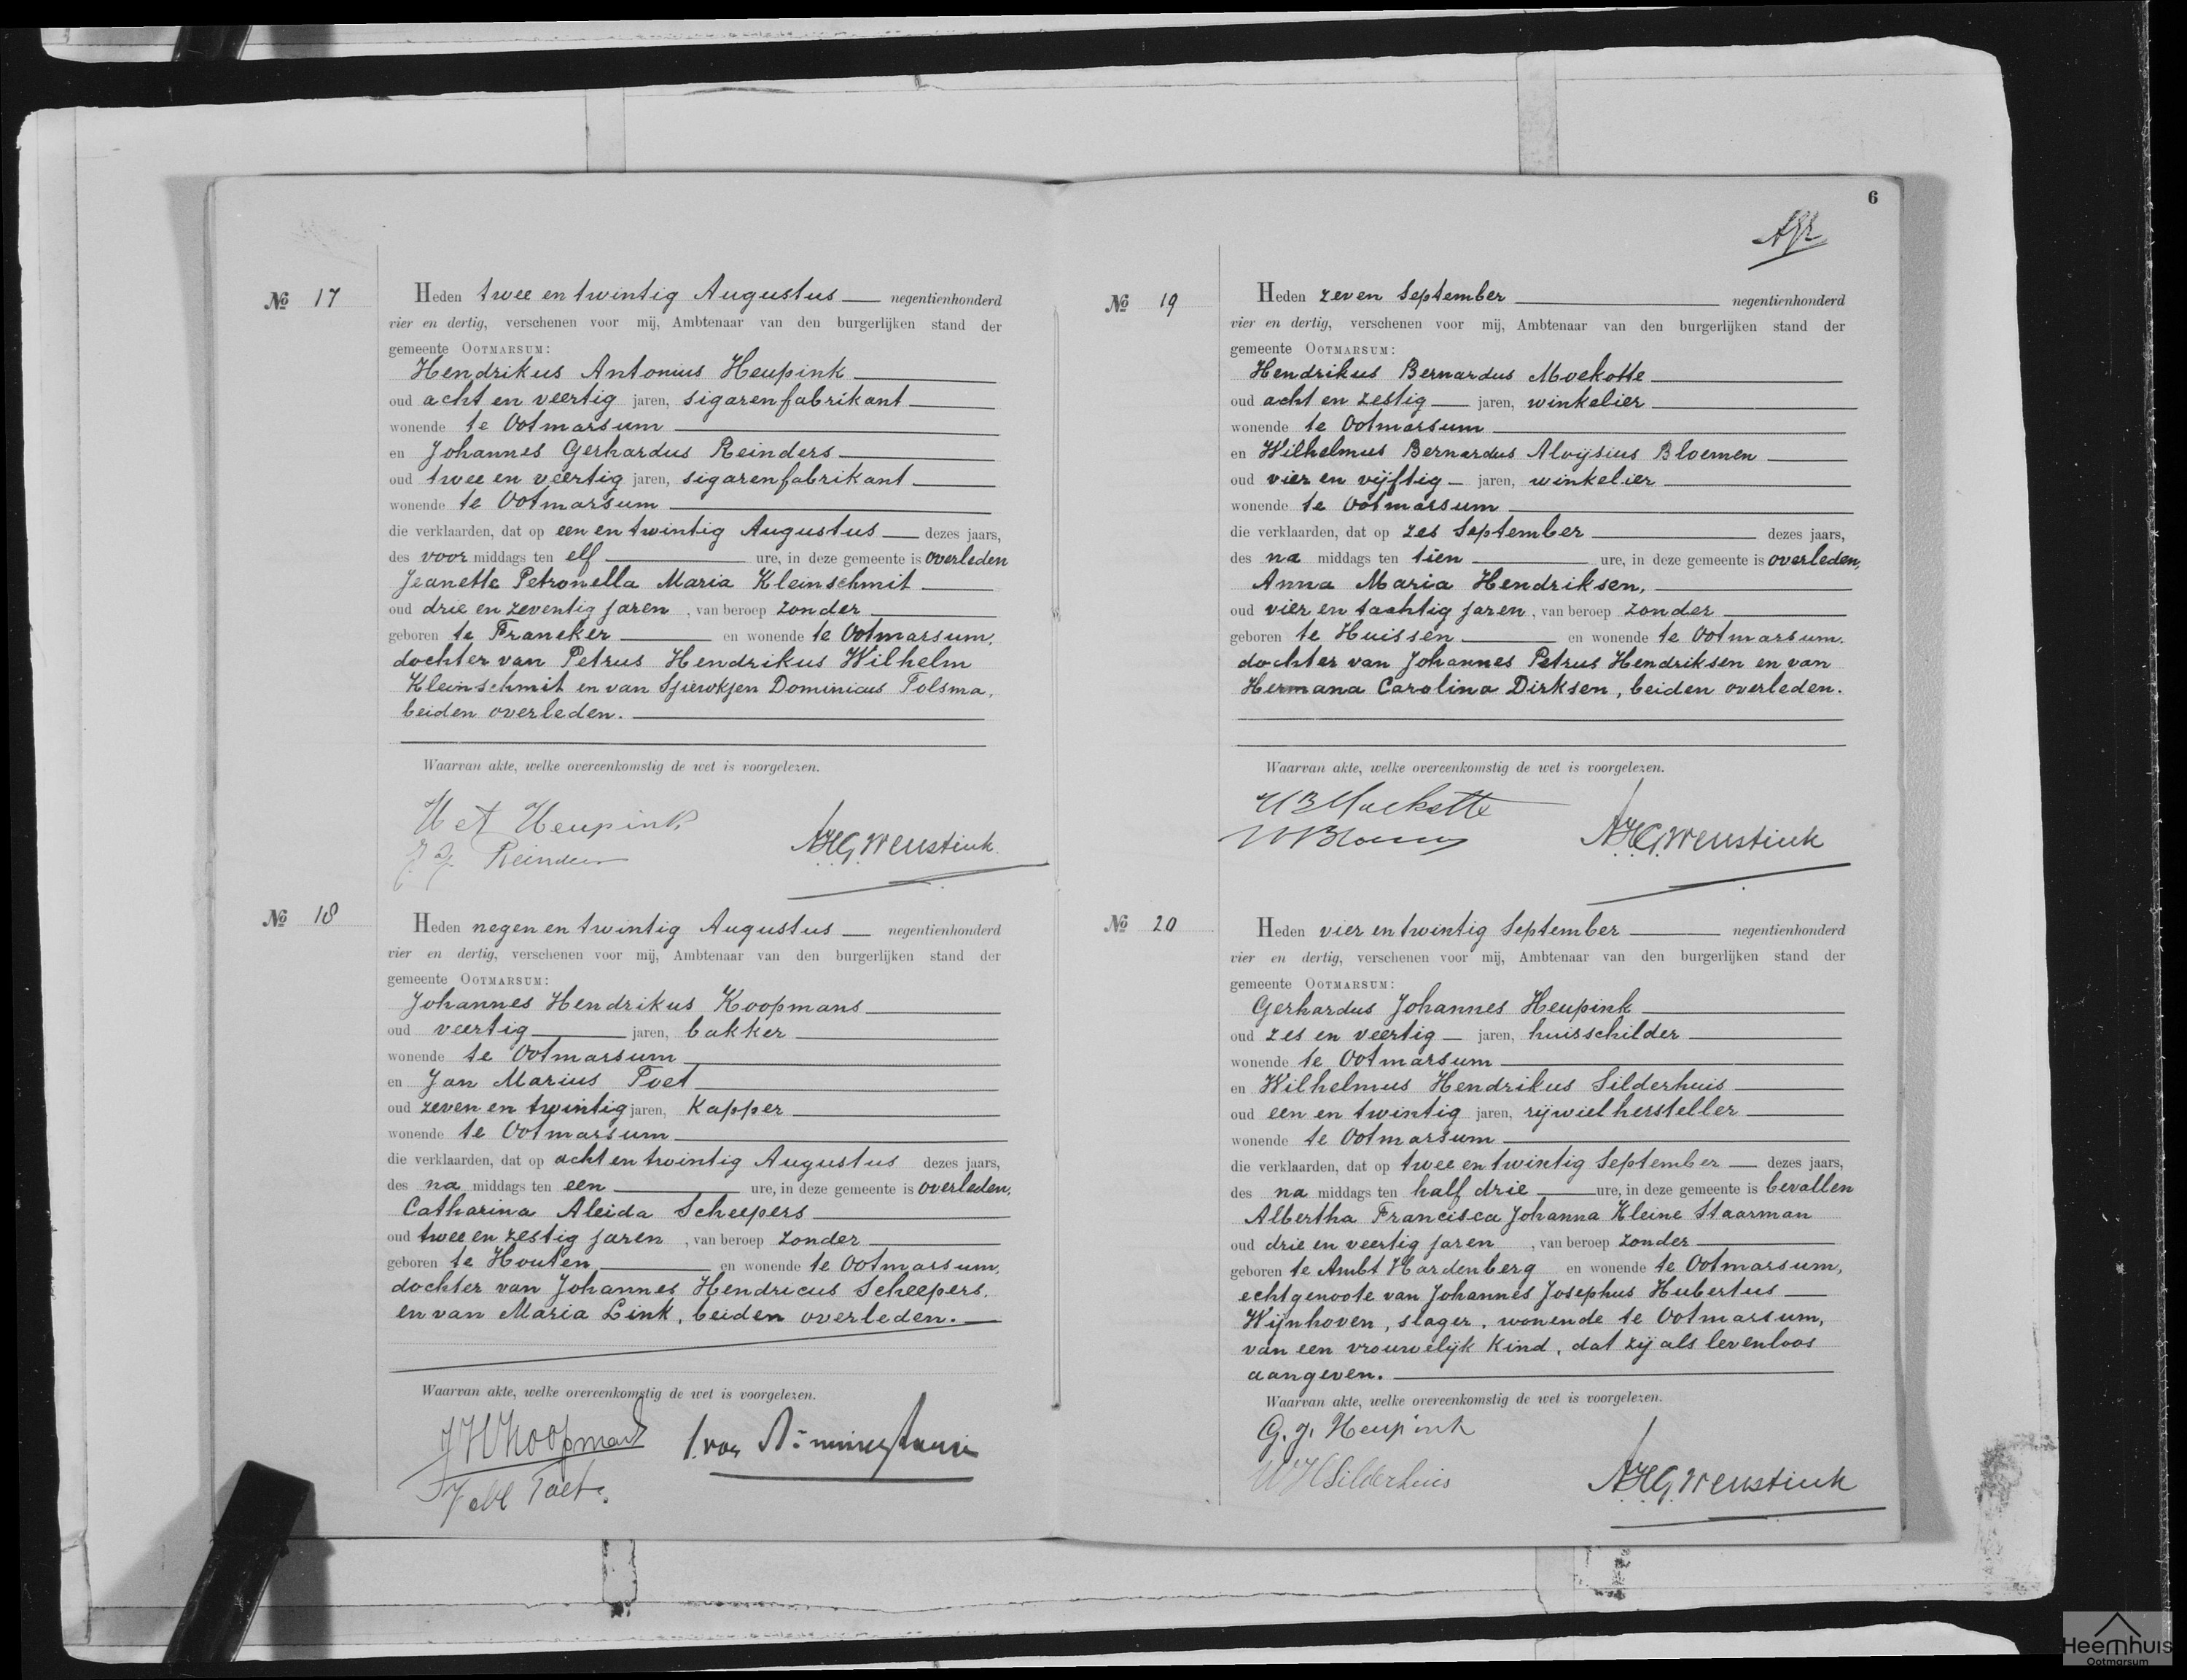 № 17
Heden twee en twintig Augustus negentienhonderd
vier en dertig, verschenen voor mij, Ambtenaar van den burgerlijken stand der
gemeente OOTMARSUM:
Hendrikus Antonius Heupink
oud acht en veertig jaren, sigarenfabrikant
wonende te Ootmarsum
en Johannes Gerhardus Reinders
oud twee en veertig jaren, sigarenfabrikant
wonende te Ootmarsum
die verklaarden, dat op een en twintig Augustus dezes jaars,
des voor middags ten elf ure, in deze gemeente is overleden
Jeanette Petronella Maria Kleinschmit
oud drie en zeventig jaren, van beroep zonder
geboren te Franeker en wonende te Ootmarsum,
dochter van Petrus Hendrikus Wilhelm
Kleinschmit en van Sjiewkjen Dominicus Tolsma,
beiden overleden.
Waarvan akte, welke overeenkomstig de wet is voorgelezen.
H A Heupink
J G Reinders
A.H.G. Wenstink
№ 18
Heden negen en twintig Augustus negentienhonderd
vier en dertig, verschenen voor mij, Ambtenaar van den burgerlijken stand der
gemeente OOTMARSUM:
Johannes Hendrikus Koopmans
oud veertig jaren, bakker
wonende te Ootmarsum
en Jan Marius Poet
oud zeven en twintig jaren, kapper
wonende te Ootmarsum
die verklaarden, dat op acht en twintig Augustus dezes jaars,
des na middags ten een ure, in deze gemeente is overleden,
Catharina Aleida Scheepers
oud twee en zestig jaren, van beroep zonder
geboren te Houten en wonende te Ootmarsum,
dochter van Johannes Hendricus Scheepers.
en van Maria Link, beiden overleden.
Waarvan akte, welke overeenkomstig de wet is voorgelezen.
J H Koopmans
6
№ 19
Heden zeven September negentienhonderd
vier en dertig, verschenen voor mij, Ambtenaar van den burgerlijken stand der
gemeente OOTMARSUM:
Hendrikus Bernardus Moekotte
oud acht en zestig jaren, winkelier
wonende te Ootmarsum
en Wilhelmus Bernardus Aloysius Bloemen
oud vier en vijftig jaren, winkelier
wonende te Ootmarsum
die verklaarden, dat op zes September dezes jaars,
des na middags ten tien ure, in deze gemeente is overleden,
Anna Maria Hendriksen,
oud vier en tachtig jaren, van beroep zonder
geboren te Huissen en wonende te Ootmarsum.
dochter van Johannes Petrus Hendriksen en van
Hermana Carolina Dirksen, beiden overleden.
Waarvan akte, welke overeenkomstig de wet is voorgelezen.
H B Moekotte
A.H.G. Wenstink
№ 20
Heden vier en twintig September negentienhonderd
vier en dertig, verschenen voor mij, Ambtenaar van den burgerlijken stand der
gemeente OOTMARSUM:
Gerhardus Johannes Heupink
oud zes en veertig jaren, huisschilder
wonende te Ootmarsum
en Wilhelmus Hendrikus Silderhuis
oud een en twintig jaren, rijwielhersteller
wonende te Ootmarsum
die verklaarden, dat op twee en twintig September dezes jaars,
des na middags ten half drie ure, in deze gemeente is bevallen
Albertha Francisca Johanna Kleine Staarman
oud drie en veertig jaren, van beroep zonder
geboren te Ambt Hardenberg en wonende te Ootmarsum,
echtgenoote van Johannes Josephus Hubertus
Wijnhoven, slager, wonende te Ootmarsum,
van een vrouwelijk kind, dat zij als levenloos
aangeven.
Waarvan akte, welke overeenkomstig de wet is voorgelezen.
G. J. Heupink
W H Silderhuis
A.H.G. Wenstink
Heemhuis
Ootmarsum